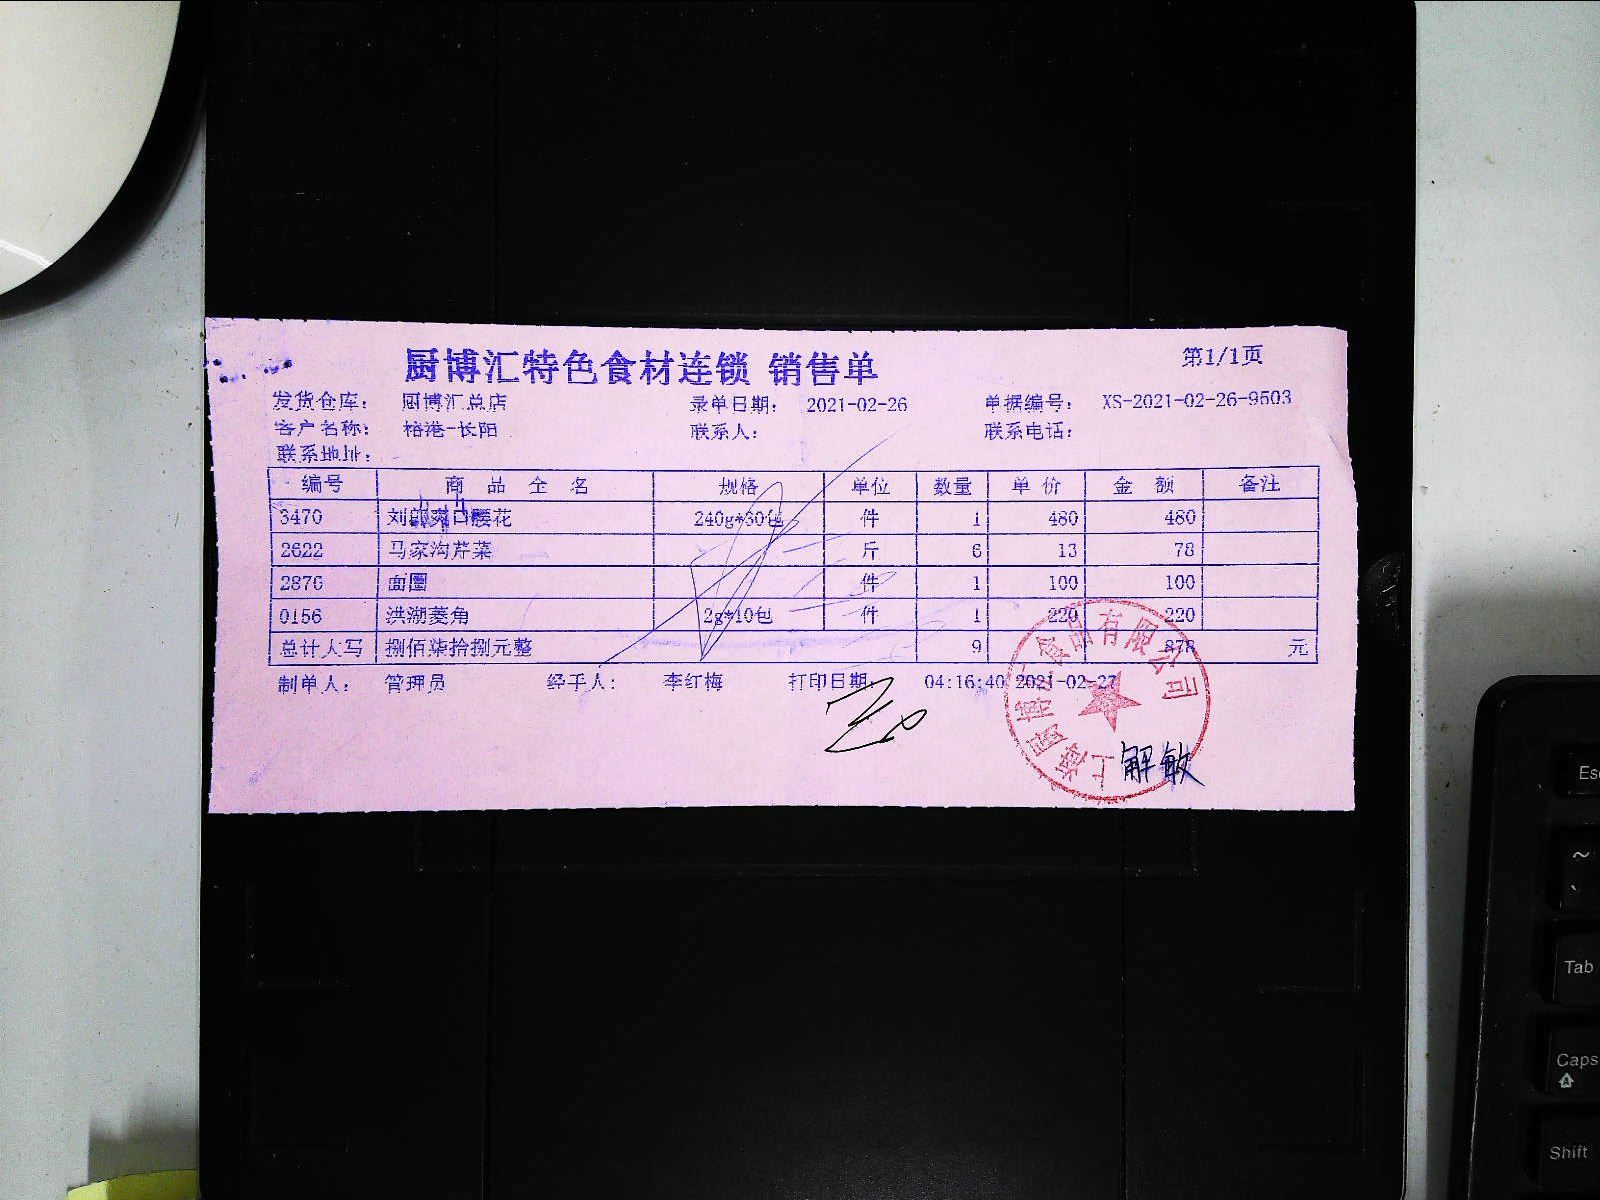 厨博汇特色食材连锁 销售单 第1/1页
发货仓库： 厨博汇总店 录单日期： 2021-02-26 单据编号： XS-2021-02-26-9503
客户名称： 榕港-长阳 联系人： 联系电话：
联系地址：
编号 商品全名 规格 单位 数量 单价 金额 备注
3470 刘郎爽口腰花 240g*30包 件 1 480 480
2622 马家沟芹菜 斤 6 13 78
2876 面圈 件 1 100 100
0156 洪湖菱角 2g*10包 件 1 220 220
总计大写 捌佰柒拾捌元整 9 878 元
制单人： 管理员 经手人： 李红梅 打印日期： 04:16:40 2021-02-27
上海厨博汇食品有限公司
解敏
Esc
~
Tab
Caps
Shift